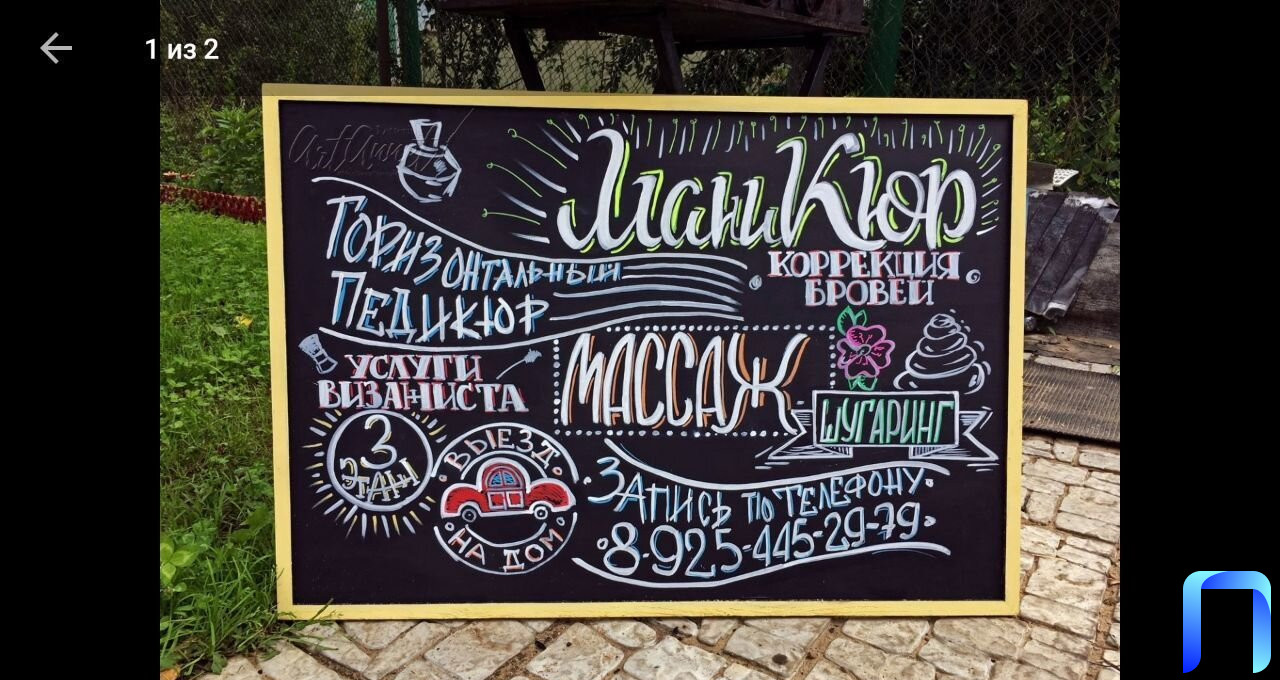 1 из 2
МаниКюр
Горизонтальный
Педикюр
Коррекция
бровей
Услуги
визажиста
Массаж
Шугаринг
3
этаж
Выезд
на дом
Запись по телефону
8-925-445-29-79
П